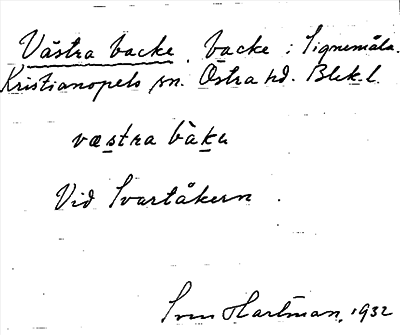 Västra backe, backe i Signemåla.
Kristianopels sn. Östra hd. Blek. l.
væstra bàkɐ
Vid Svartåkern.
Sven Hartman, 1932